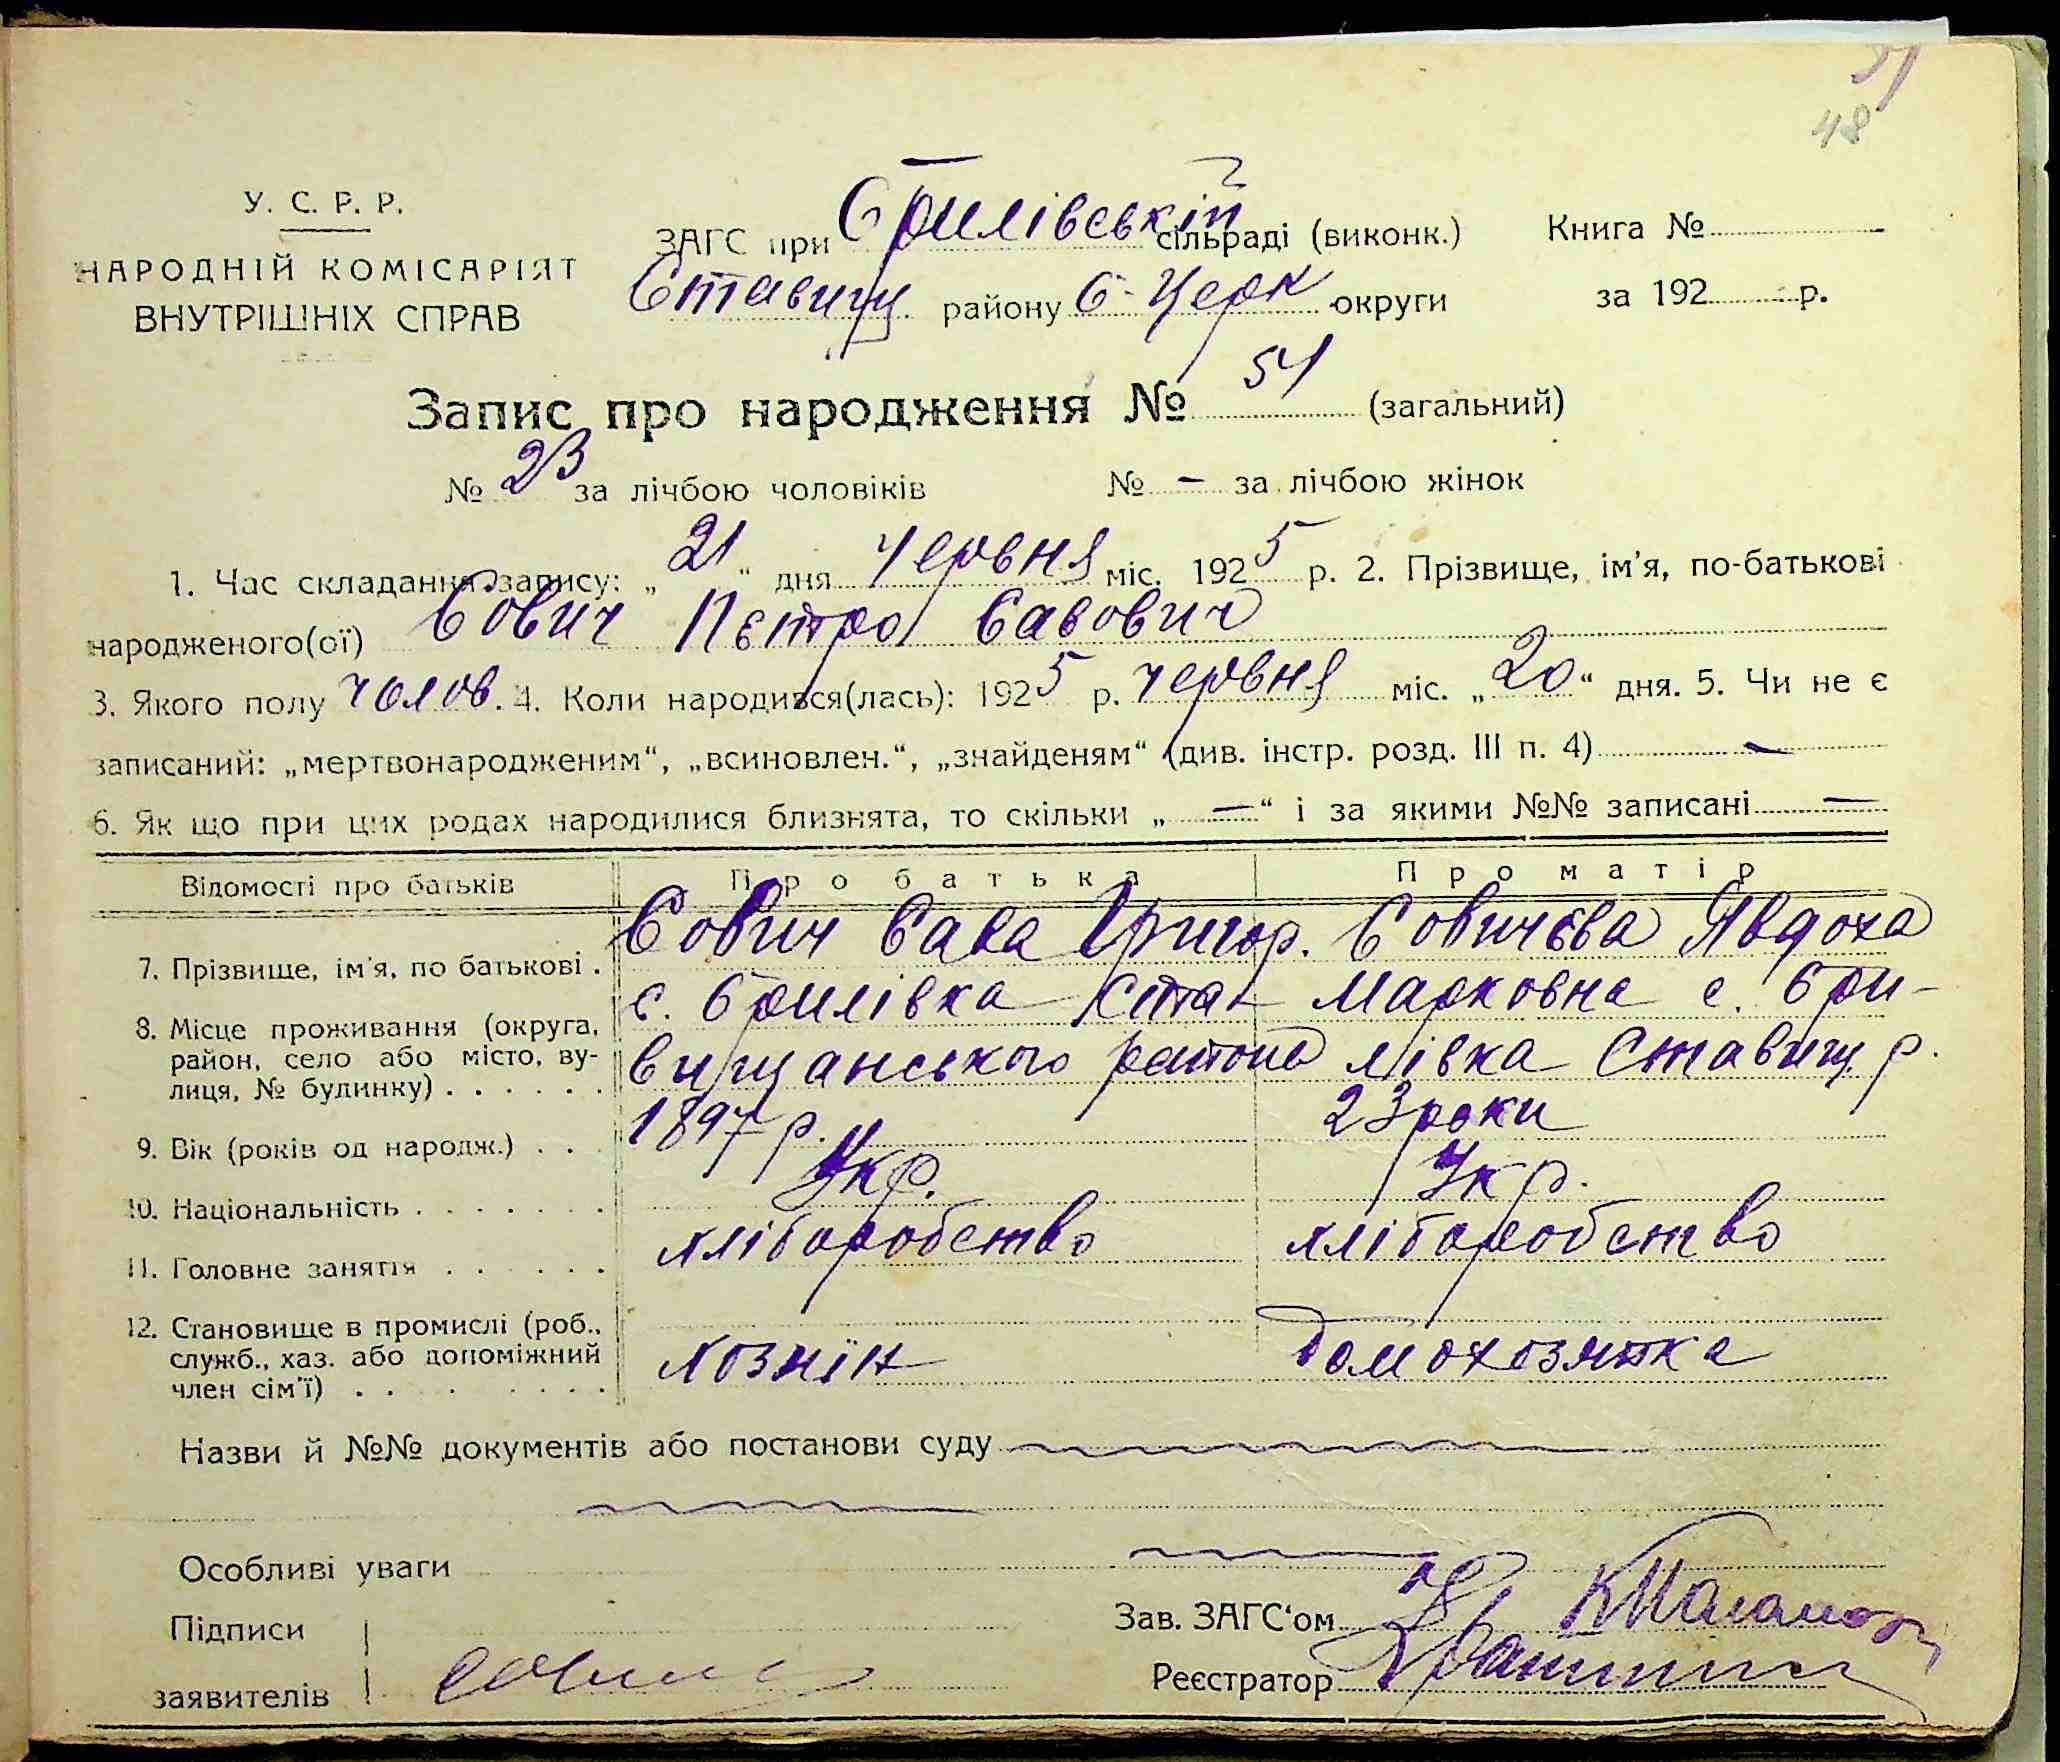 51
48
У. С. Р. Р.
НАРОДНІЙ КОМІСАРІЯТ
ВНУТРІШНІХ СПРАВ
ЗАГС при Брилівській сільраді (виконк.) Книга №
Ставищ. району Б-Церк округи за 192 р.
Запис про народження № 51 (загальний)
№ 23 за лічбою чоловіків № — за лічбою жінок
1. Час складання запису: „21“ дня червня міс. 1925 р. 2. Прізвище, ім'я, по-батькові
народженого(ої) Сович Петро Савович
3. Якого полу чолов. 4. Коли народився(лась): 1925 р. червня міс. „20“ дня. 5. Чи не є
записаний: „мертвонародженим“, „всиновлен.“, „знайденям“ (див. інстр. розд. III п. 4) —
6. Як що при цих родах народилися близнята, то скільки „—“ і за якими №№ записані —
Відомості про батьків Про батька Про матір
7. Прізвище, ім'я, по батькові . Сович Сава Григор. Совичева Явдоха
8. Місце проживання (округа, с. Брилівка Ста- Марковна с. Бри-
район, село або місто, ву- вищанського району лівка Ставищ. р.
лиця, № будинку) . . . . . .
9. Вік (років од народж.) . . 1897 р. 23 роки
10. Національність . . . . . . . Укр. Укр.
11. Головне заняття . . . . . . хліборобство хліборобство
12. Становище в промислі (роб.,
служб., хаз. або допоміжний хозяїн домохозяйка
член сім'ї) . . . . . . . .
Назви й №№ документів або постанови суду
Особливі уваги
Підписи Зав. ЗАГС'ом
заявителів Реєстратор